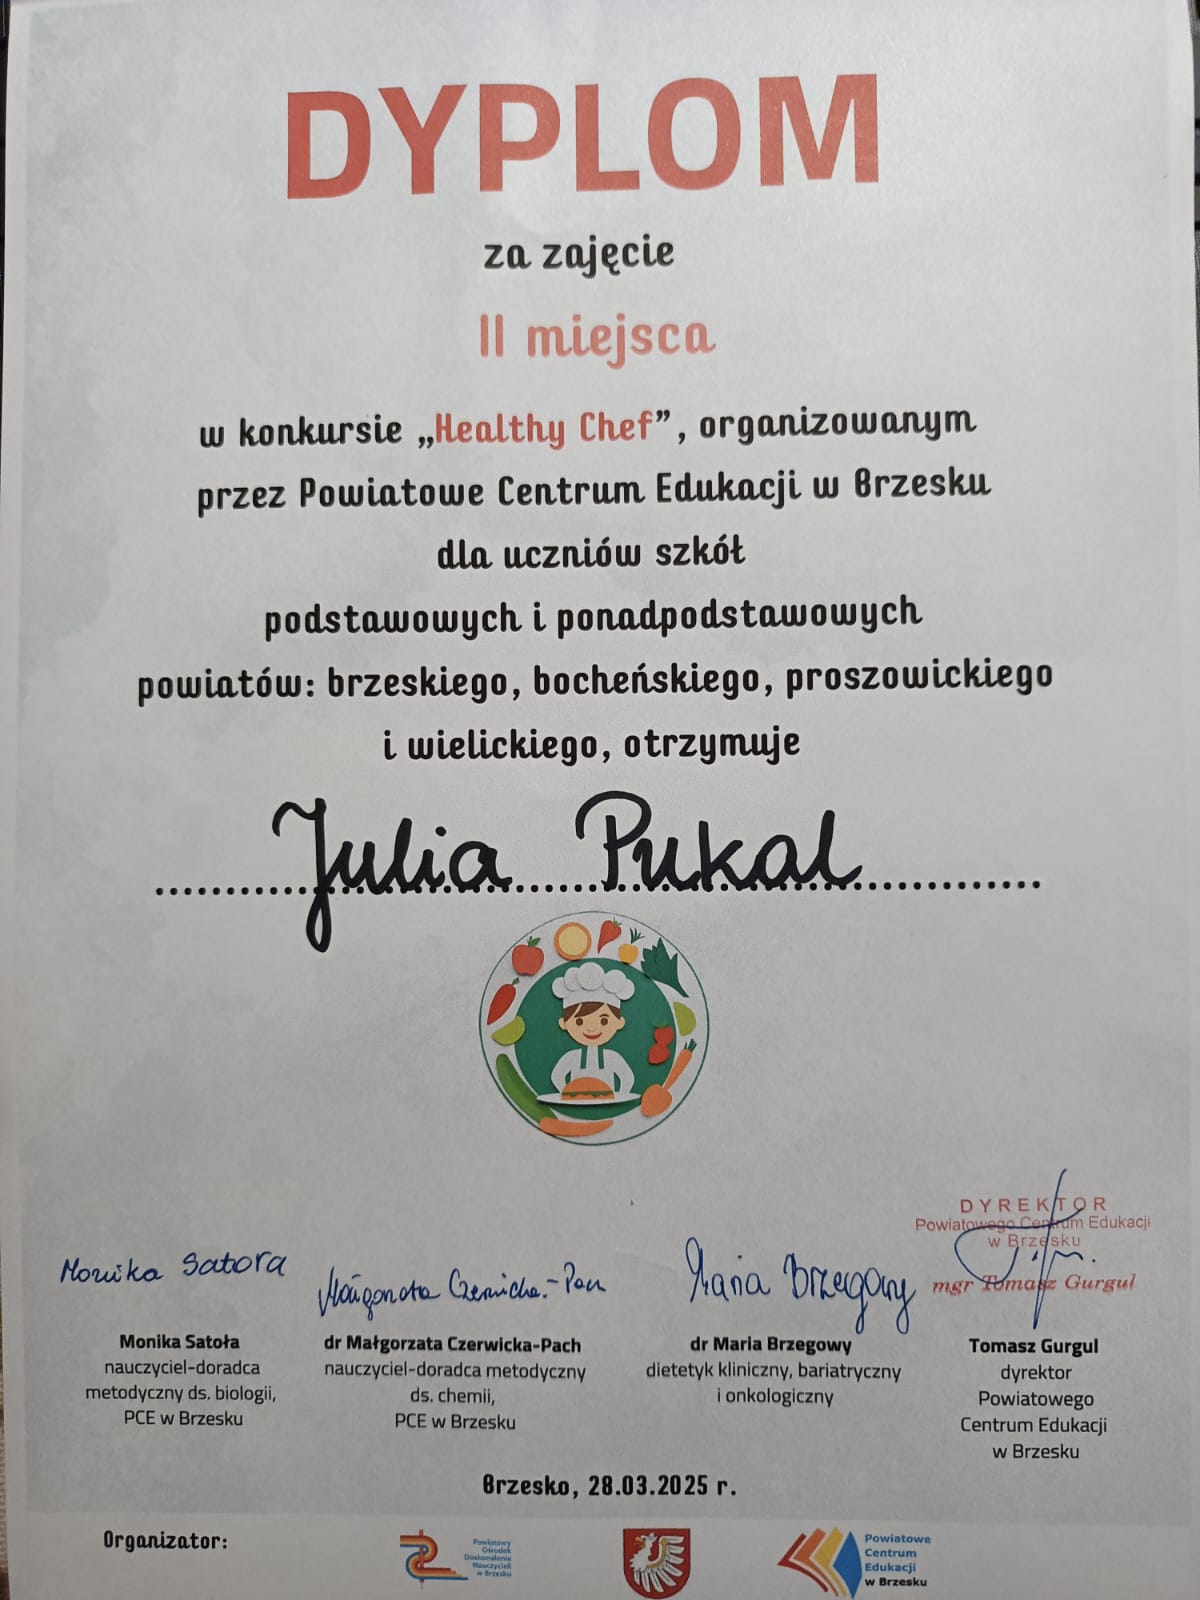 DYPLOM
za zajęcie
II miejsca
w konkursie „Healthy Chef”, organizowanym
przez Powiatowe Centrum Edukacji w Brzesku
dla uczniów szkół
podstawowych i ponadpodstawowych
powiatów: brzeskiego, bocheńskiego, proszowickiego
i wielickiego, otrzymuje
Julia Pukal
DYREKTOR
Powiatowego Centrum Edukacji
w Brzesku
mgr Tomasz Gurgul
Monika Satoła
Małgorzata Czerwicka-Pach
Maria Brzegowy
Monika Satoła
nauczyciel-doradca
metodyczny ds. biologii,
PCE w Brzesku
dr Małgorzata Czerwicka-Pach
nauczyciel-doradca metodyczny
ds. chemii,
PCE w Brzesku
dr Maria Brzegowy
dietetyk kliniczny, bariatryczny
i onkologiczny
Tomasz Gurgul
dyrektor
Powiatowego
Centrum Edukacji
w Brzesku
Brzesko, 28.03.2025 r.
Organizator:
Powiatowy
Ośrodek
Doskonalenia
Nauczycieli
w Brzesku
Powiatowe
Centrum
Edukacji
w Brzesku